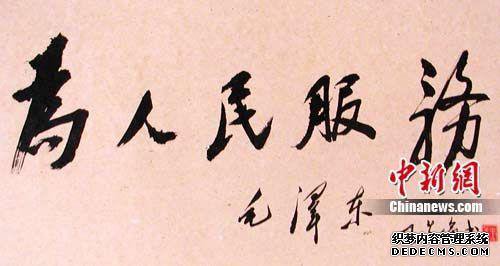 為人民服務
毛澤东
中新網
Chinanews.com
织梦内容管理系统
DEDECMS.COM